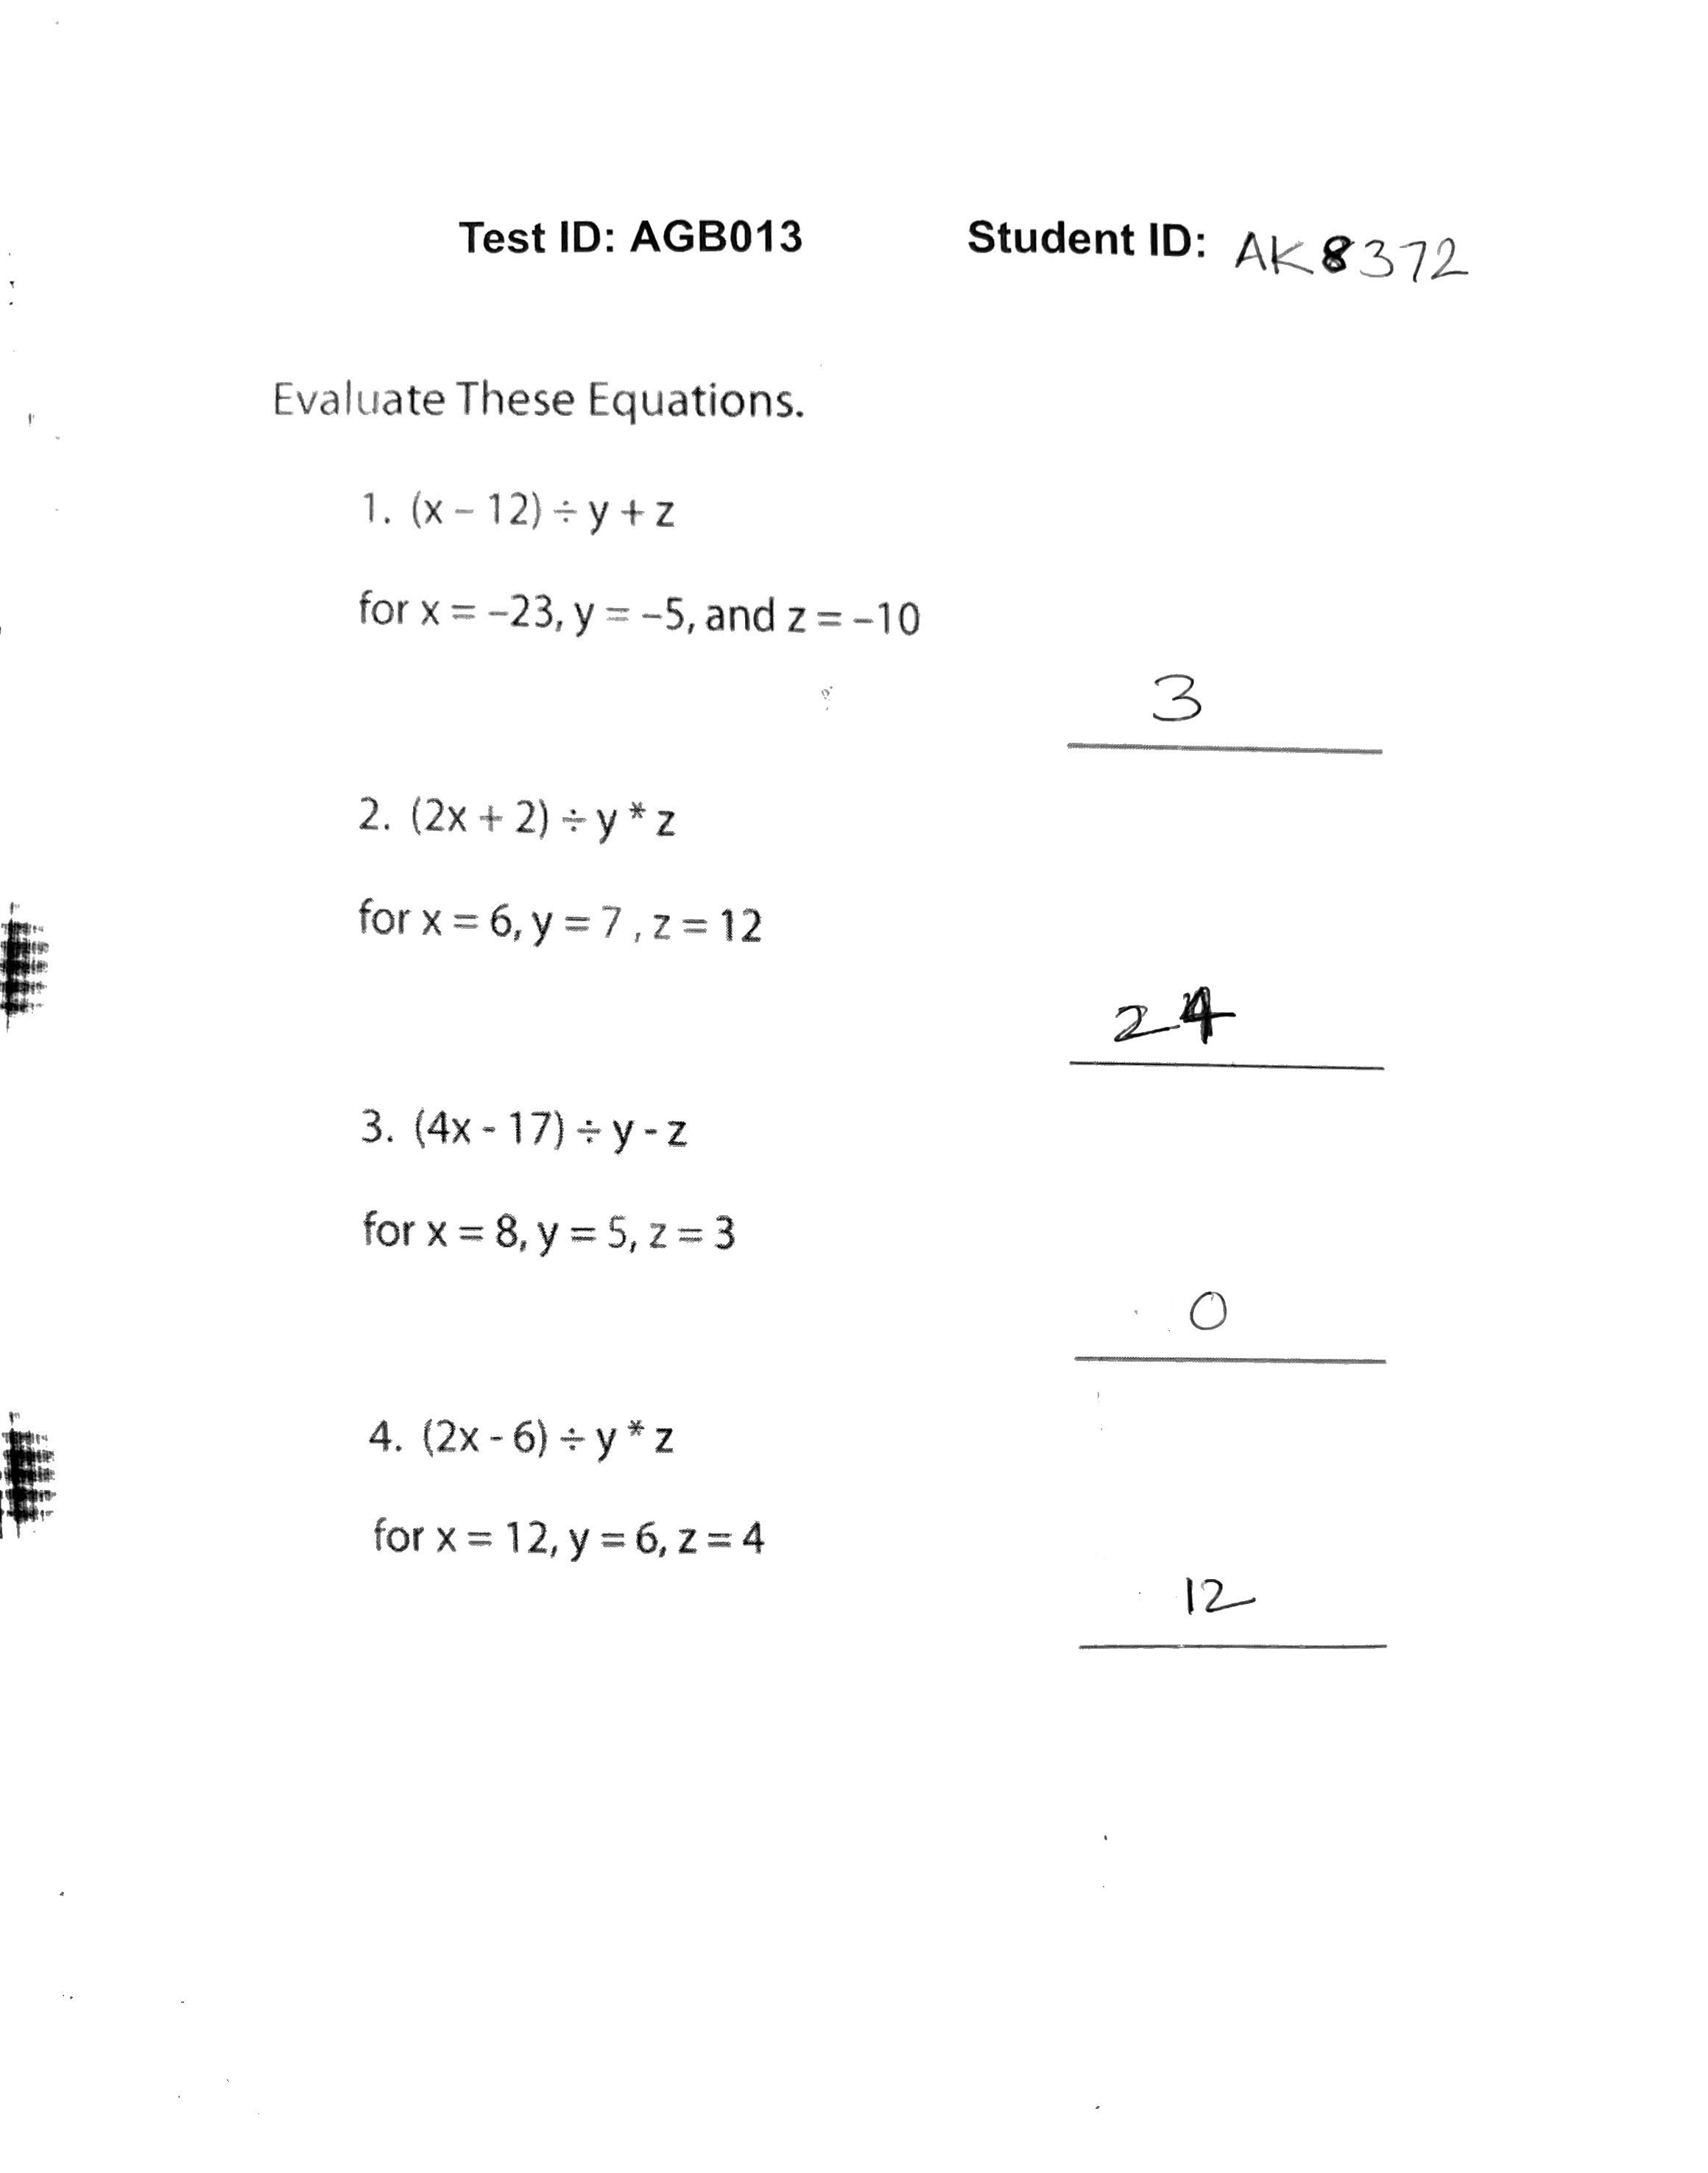 Test ID: AGB013 Student ID: AK8372
Evaluate These Equations.
1. (x – 12) ÷ y + z
for x = –23, y = –5, and z = –10
3
2. (2x + 2) ÷ y * z
for x = 6, y = 7 , z = 12
24
3. (4x - 17) ÷ y - z
for x = 8, y = 5, z = 3
0
4. (2x - 6) ÷ y * z
for x = 12, y = 6, z = 4
12